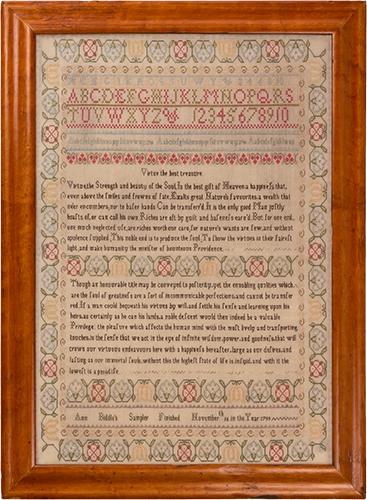 ABCDEFGHIJKLMNOPQRS
TUVWXYZ& 12345678910
Virtue the best treasure.
Virtue, the Strength and beauty of the Soul, Is the best gift of Heaven: a happiness that,
even above the smiles and frowns of fate, Exalts great Nature's favourites; a wealth that
ne'er encumbers, nor to baser hands Can be transfer'd. It is the only good Man justly
boasts of, or can call his own. Riches are oft by guilt and baseness earn'd. But for one end,
one much neglected use, are riches worth our care, for nature's wants are few, and without
opulence supplied, This noble end is to produce the soul, To show the virtues in their fairest
light, and make humanity the minister of bounteous Providence.
Though an honourable title may be conveyed to posterity, yet the ennobling qualities which
are the soul of greatness are a sort of incommunicable perfections, and cannot be transfer
red. If a man could bequeath his virtues by will, and settle his sense and learning upon his
heirs, as certainly as he can his lands, a noble descent would then indeed be a valuable
Privilege. the pleasure which affects the human mind with the most lively and transporting
touches, is the sense that we act in the eye of infinite wisdom, power, and goodness, that will
crown our virtuous endeavours here with a happiness hereafter, large as our desires, and
lasting as our immortal souls, without this the highest state of life is insipid, and with it the
lowest is a paradise.
Ann Sampler Finished November in the Year